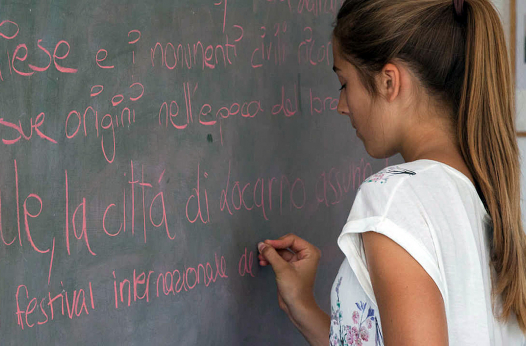 iese e i monumenti civili
sue origini nell'epoca del
le, la città di Locarno
festival internazionale de